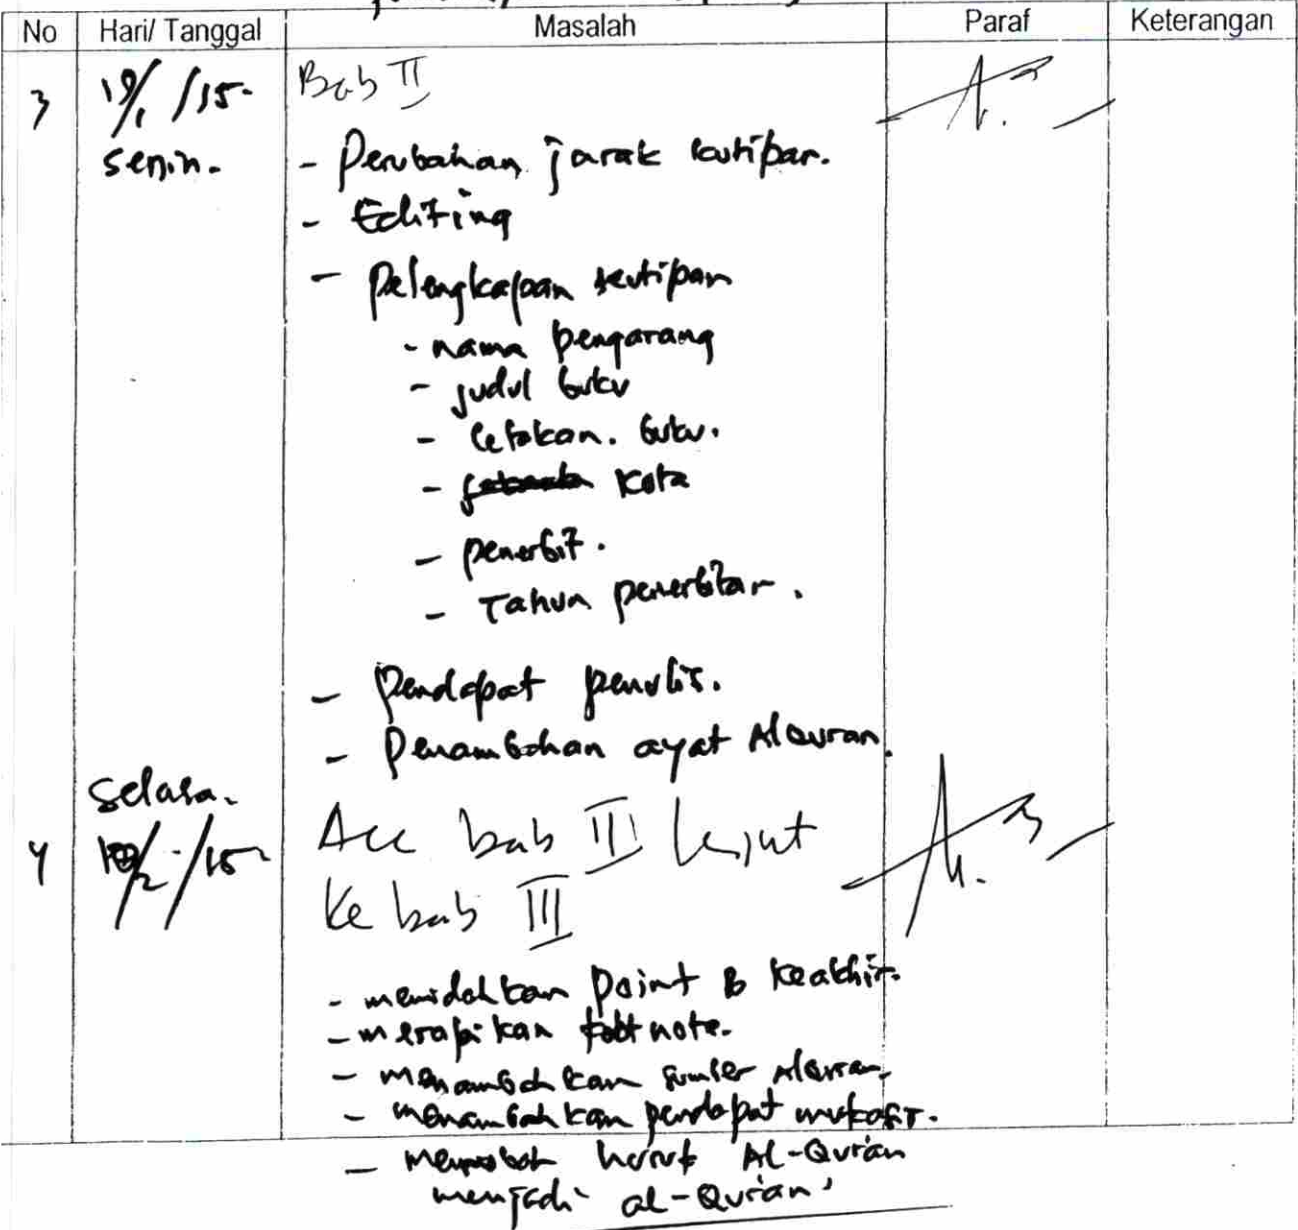 No Hari/ Tanggal Masalah Paraf Keterangan
3 19/1 /15- Bab II
senin. - Perubahan jarak kutipan.
- Editing
- Pelengkapan kutipan
- nama pengarang
- judul buku
- Cetakan. buku.
- Kota
- penerbit.
- Tahun penerbitan.
- Pendapat penulis.
- Penambahan ayat Alquran.
Selasa.
4 10/2 /15 Acc bab II lanjut
Ke bab III
- memidahkan Point B keakhir.
- merapikan footnote.
- menambahkan sumber Alquran.
- menambahkan pendapat
- huruf Al-Qur'an
menjadi al-Qur'an